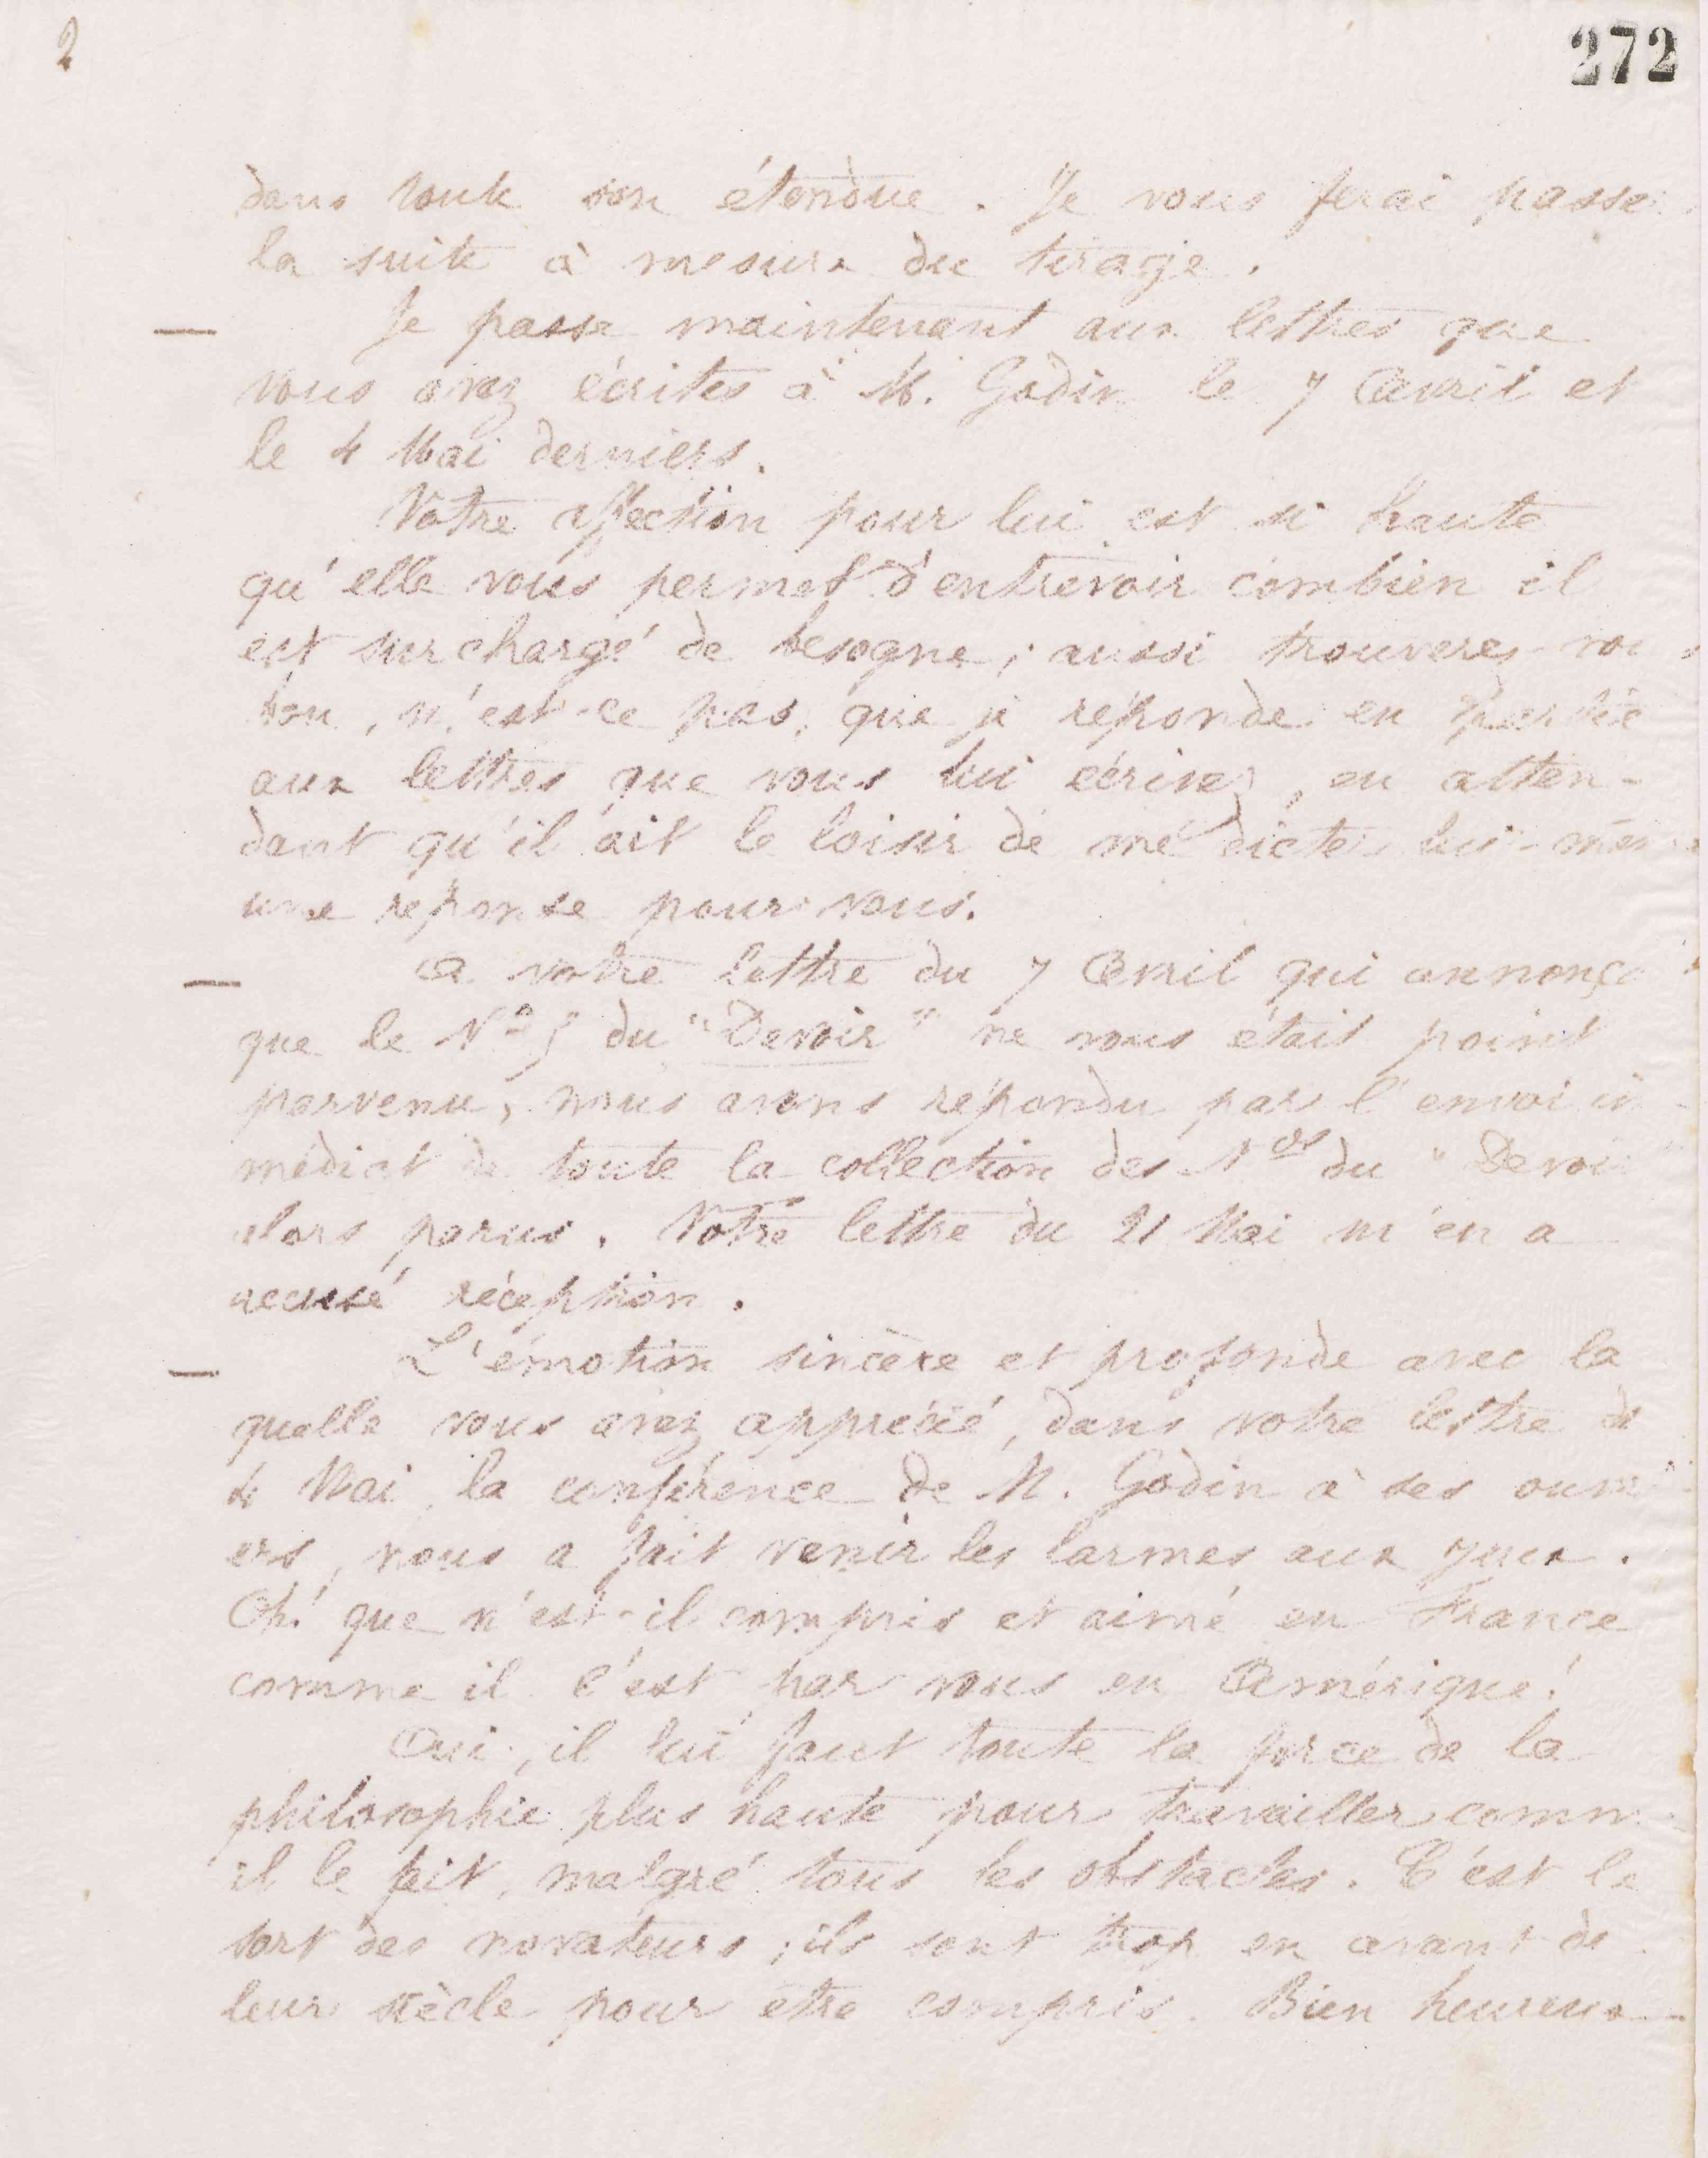 2
272
dans toute son étendue. Je vous ferai passer
la suite à mesure du tirage.
— Je passe maintenant aux lettres que
vous avez écrites à M. Godin le 7 Avril et
le 4 Mai derniers.
Votre affection pour lui est si haute
qu'elle vous permet d'entrevoir combien il
est surchargé de besogne; aussi trouverez-vous
bon, n'est-ce pas, que je réponde en partie
aux lettres que vous lui écrivez, en atten-
dant qu'il ait le loisir de me dicter lui-même
une réponse pour vous.
— A votre lettre du 7 Avril qui annonça
que le Nº 5 du "Devoir" ne vous était point
parvenu, nous avons répondu par l'envoi im-
médiat de toute la collection des Nos du "Devoir"
alors parus. Votre lettre du 21 Mai m'en a
accusé réception.
— L'émotion sincère et profonde avec la
quelle vous avez apprécié, dans votre lettre du
4 Mai, la conférence de M. Godin à ses ouvri-
ers, nous a fait venir les larmes aux yeux.
Oh! que n'est-il compris et aimé en France
comme il l'est par vous en Amérique!
Oui, il lui faut toute la force de la
philosophie plus haute pour travailler comme
il le fait, malgré tous les obstacles. C'est le
sort des novateurs; ils sont trop en avant de
leur siècle pour etre compris. Bien heureux